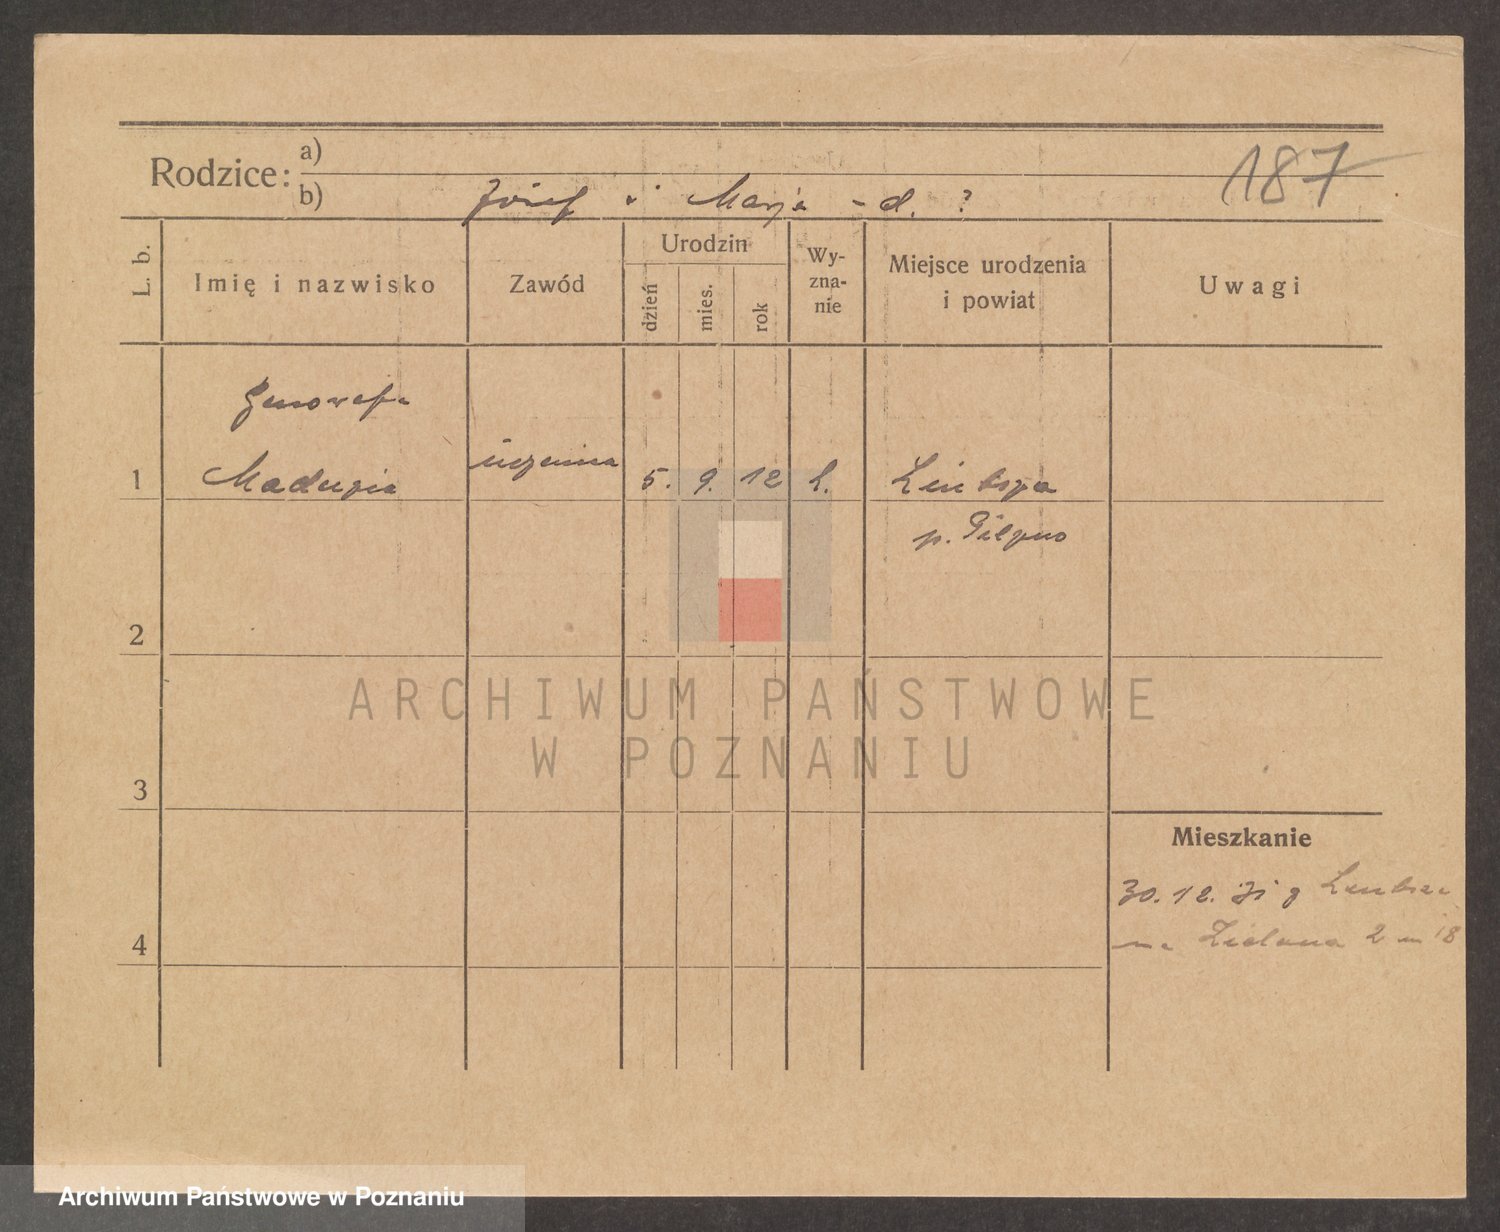 Rodzice:
a)
b) Józef i Marja - d. ?
187
L. b.
Imię i nazwisko
Zawód
Urodzin
dzień
mies.
rok
Wy-
zna-
nie
Miejsce urodzenia
i powiat
Uwagi
Genowefa
1 uczenica 5. 9. 12
p. Pilzno
2
ARCHIWUM PAŃSTWOWE
W POZNANIU
3
Mieszkanie
30. 12. 31 z
na Zielona 2 m 18
4
Archiwum Państwowe w Poznaniu